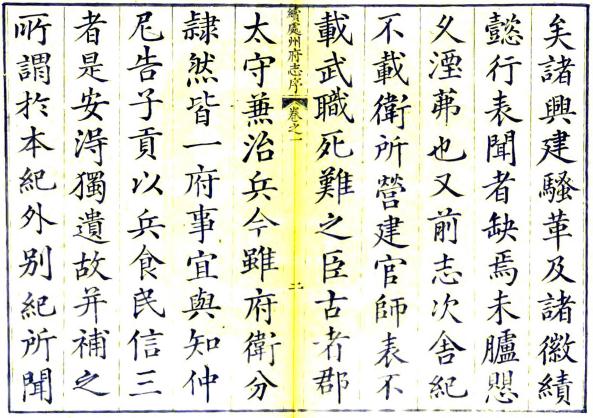 矣諸興建騷革及諸徽績
懿行表聞者缺焉未臚恐
久湮茀也又前志次舍紀
不載衛所營建官師表不
載武職死難之臣古者郡
續處州府志序 卷之一 二
太守兼治兵今雖府衛分
隸然皆一府事宜與知仲
尼告子貢以兵食民信三
者是安得獨遺故并補之
所謂於本紀外別紀所聞